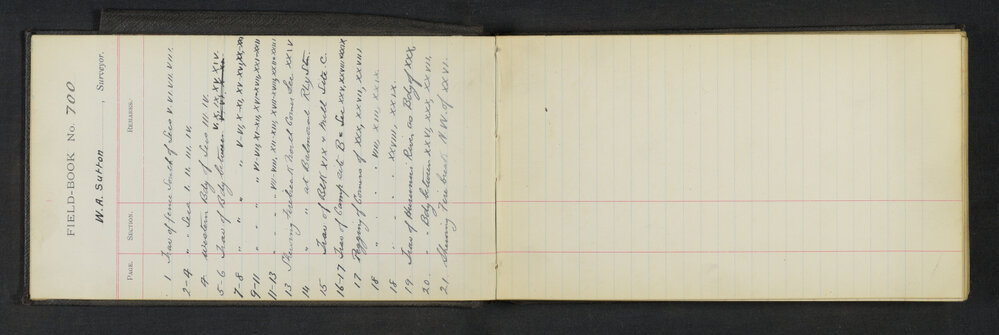 FIELD-BOOK No. 700
W. A. Sutton, Surveyor.
PAGE. SECTION. REMARKS.
1 Trav of fence South of Secs V. VI. VII. VIII.
2-4 " " Secs I. II. III. IV.
4 Western Bdy of Secs III IV.
5-6 Trav of Bdy between V. X. IX. XV. XIV.
7-8 " " " V-VI, X-XI, XV-XVI, XX-XXI
9-11 " " " VI-VII, XI-XII, XVI-XVII, XXI-XXII
11-13 " " " VII-VIII, XII-XIII, XVII-XVIII, XXII-XXIII
13 Shewing firebreak North Corner Sec XXIV
14 " " at Balmoral Rly Stn.
15 Trav of Blk XIX & Mill Site C.
16-17 Trav of Camp site B & Sec XXX, XXVIII XXIX
17 Pegging of Corners of XXX, XXVII, XXVIII
18 " " " VIII, XIII, XXIX
18 " " " XXVIII, XXIX.
19 Trav of River, as Bdy of XXX,
20. " " Bdy between XXVI, XXX, XXVII,
21. Shewing Fire break N.W. of XXVI.